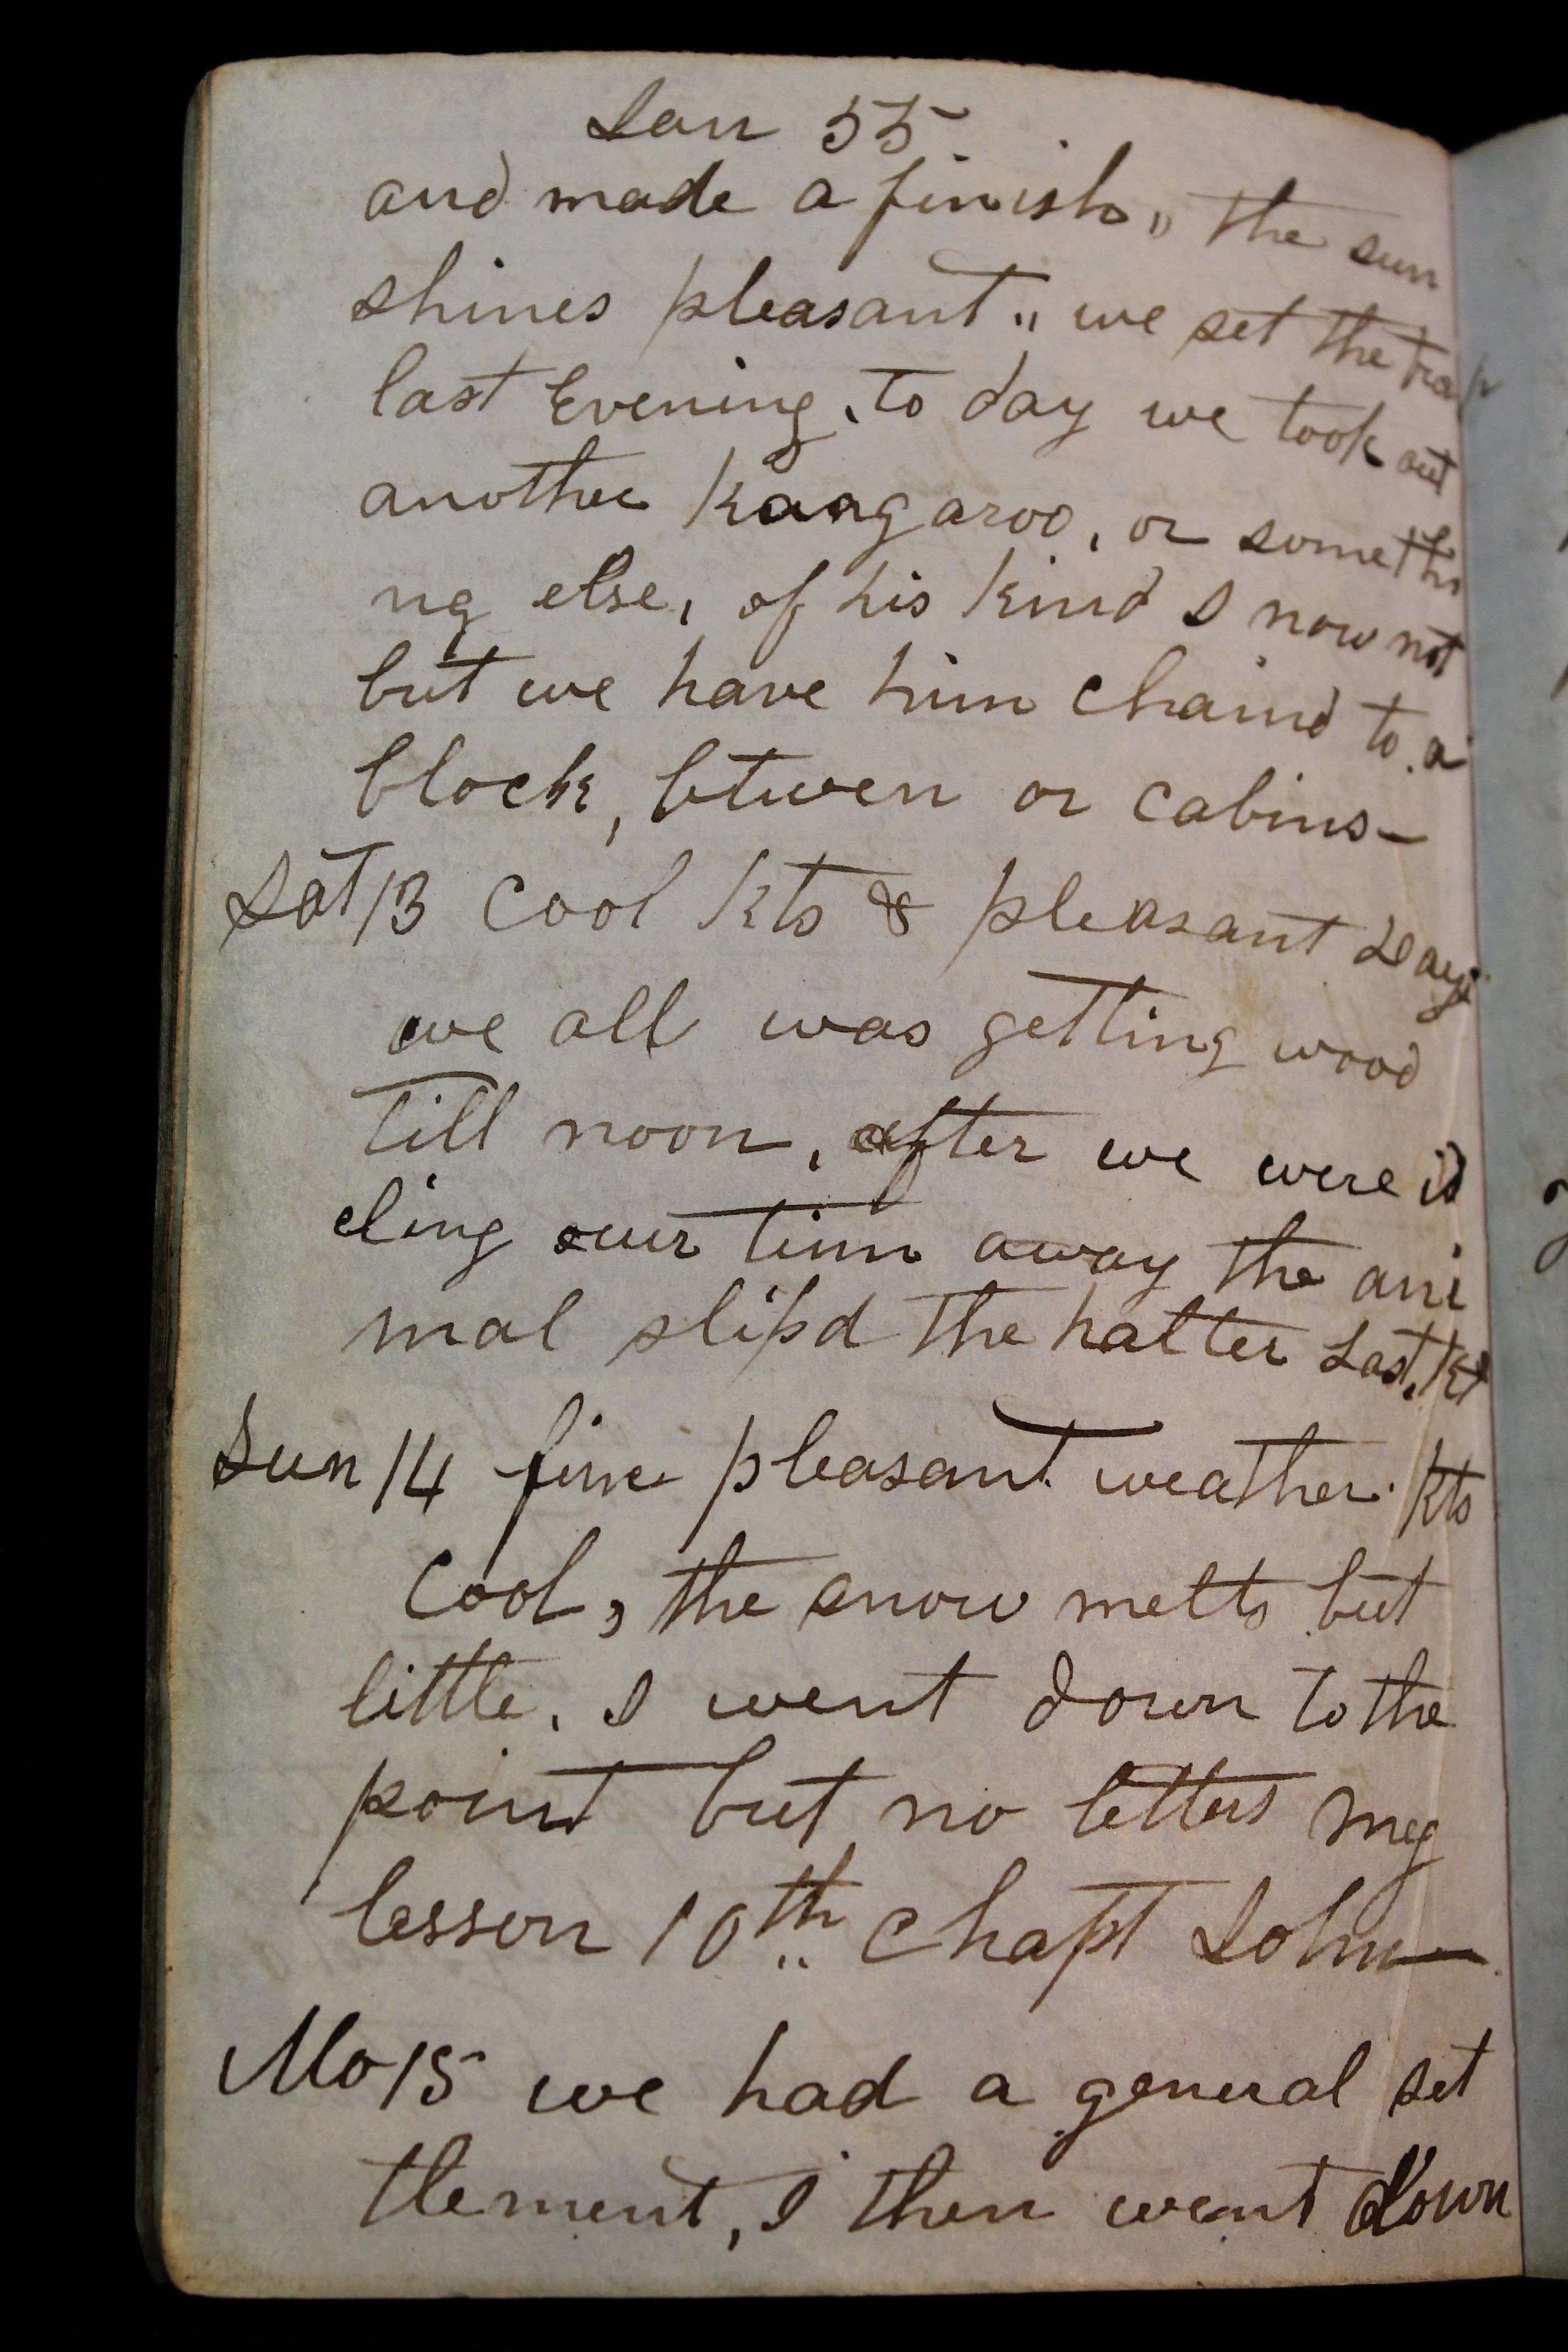 Jan 55
and made a finish,, the sun
shines pleasant ,, we set the trap
last Evening, to day we took out
another Kangaroo, or somethi
ng else, of his kind I now not
but we have him chaind to a
block, btween or cabins
Sat 13 Cool Nts & pleasant Days
we all was getting wood
till noon, after we were id
eling our tim away the ani
mal slipd the halter Last, Nt
Sun 14 fine pleasant weather Nts
Cool, the snow melts but
little, I went down to the
point but no letters my
lesson 10th Chapt John
Mo 15 we had a general set
tlement, I then went down